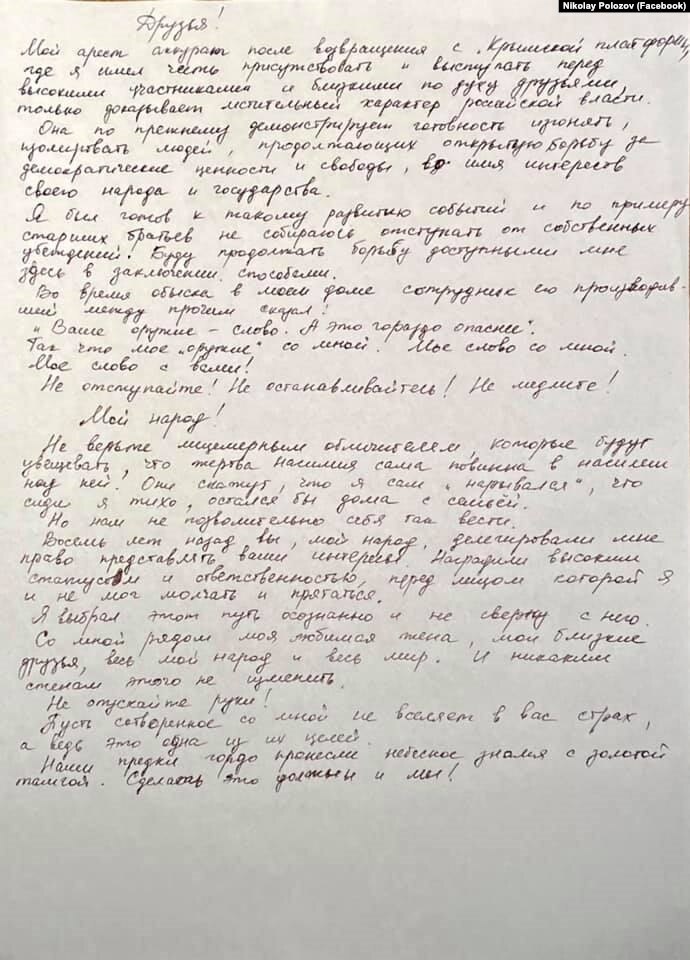 Nikolay Polozov (Facebook)
Друзья!
Мой арест аккурат после возвращения с „Крымской платформы,
где я имел честь присутствовать и выступать перед
высокими участниками и близкими по духу друзьями,
только доказывает мстительный характер российской власти.
Она по прежнему демонстрирует готовность изгонять,
изолировать людей, продолжающих открытую борьбу за
демократические ценности и свободы, во имя интересов
своего народа и государства.
Я был готов к такому развитию событий и по примеру
старших братьев не собираюсь отступать от собственных
убеждений! Буду продолжать борьбу доступными мне
здесь в заключении способами.
Во время обыска в моем доме сотрудник его производив-
ший между прочим сказал:
„Ваше оружие – слово. А это гораздо опаснее".
Так что мое „оружие" со мной. Мое слово со мной.
Мое слово с вами!
Не отступайте! Не останавливайтесь! Не медлите!
Мой народ!
Не верьте лицемерным обличителям, которые будут
увещевать, что жертва насилия сама повинна в насилии
над ней! Они скажут, что я сам „нарывался", что
сиди я тихо, остался бы дома с семьёй.
Но нам не позволительно себя так вести.
Восемь лет назад вы, мой народ, делегировали мне
право представлять ваши интересы. Наградили высоким
статусом и ответственностью, перед лицом которой я
и не мог молчать и прятаться.
Я выбрал этот путь осознанно и не сверну с него.
Со мной рядом моя любимая жена, мои близкие
друзья, весь мой народ и весь мир. И никаким
стенам этого не изменить.
Не опускайте руки!
Пусть сотворенное со мной не вселяет в вас страх,
а ведь это одна из их целей.
Наши предки гордо пронесли небесное знамя с золотой
тамгой. Сделать это должны и мы!